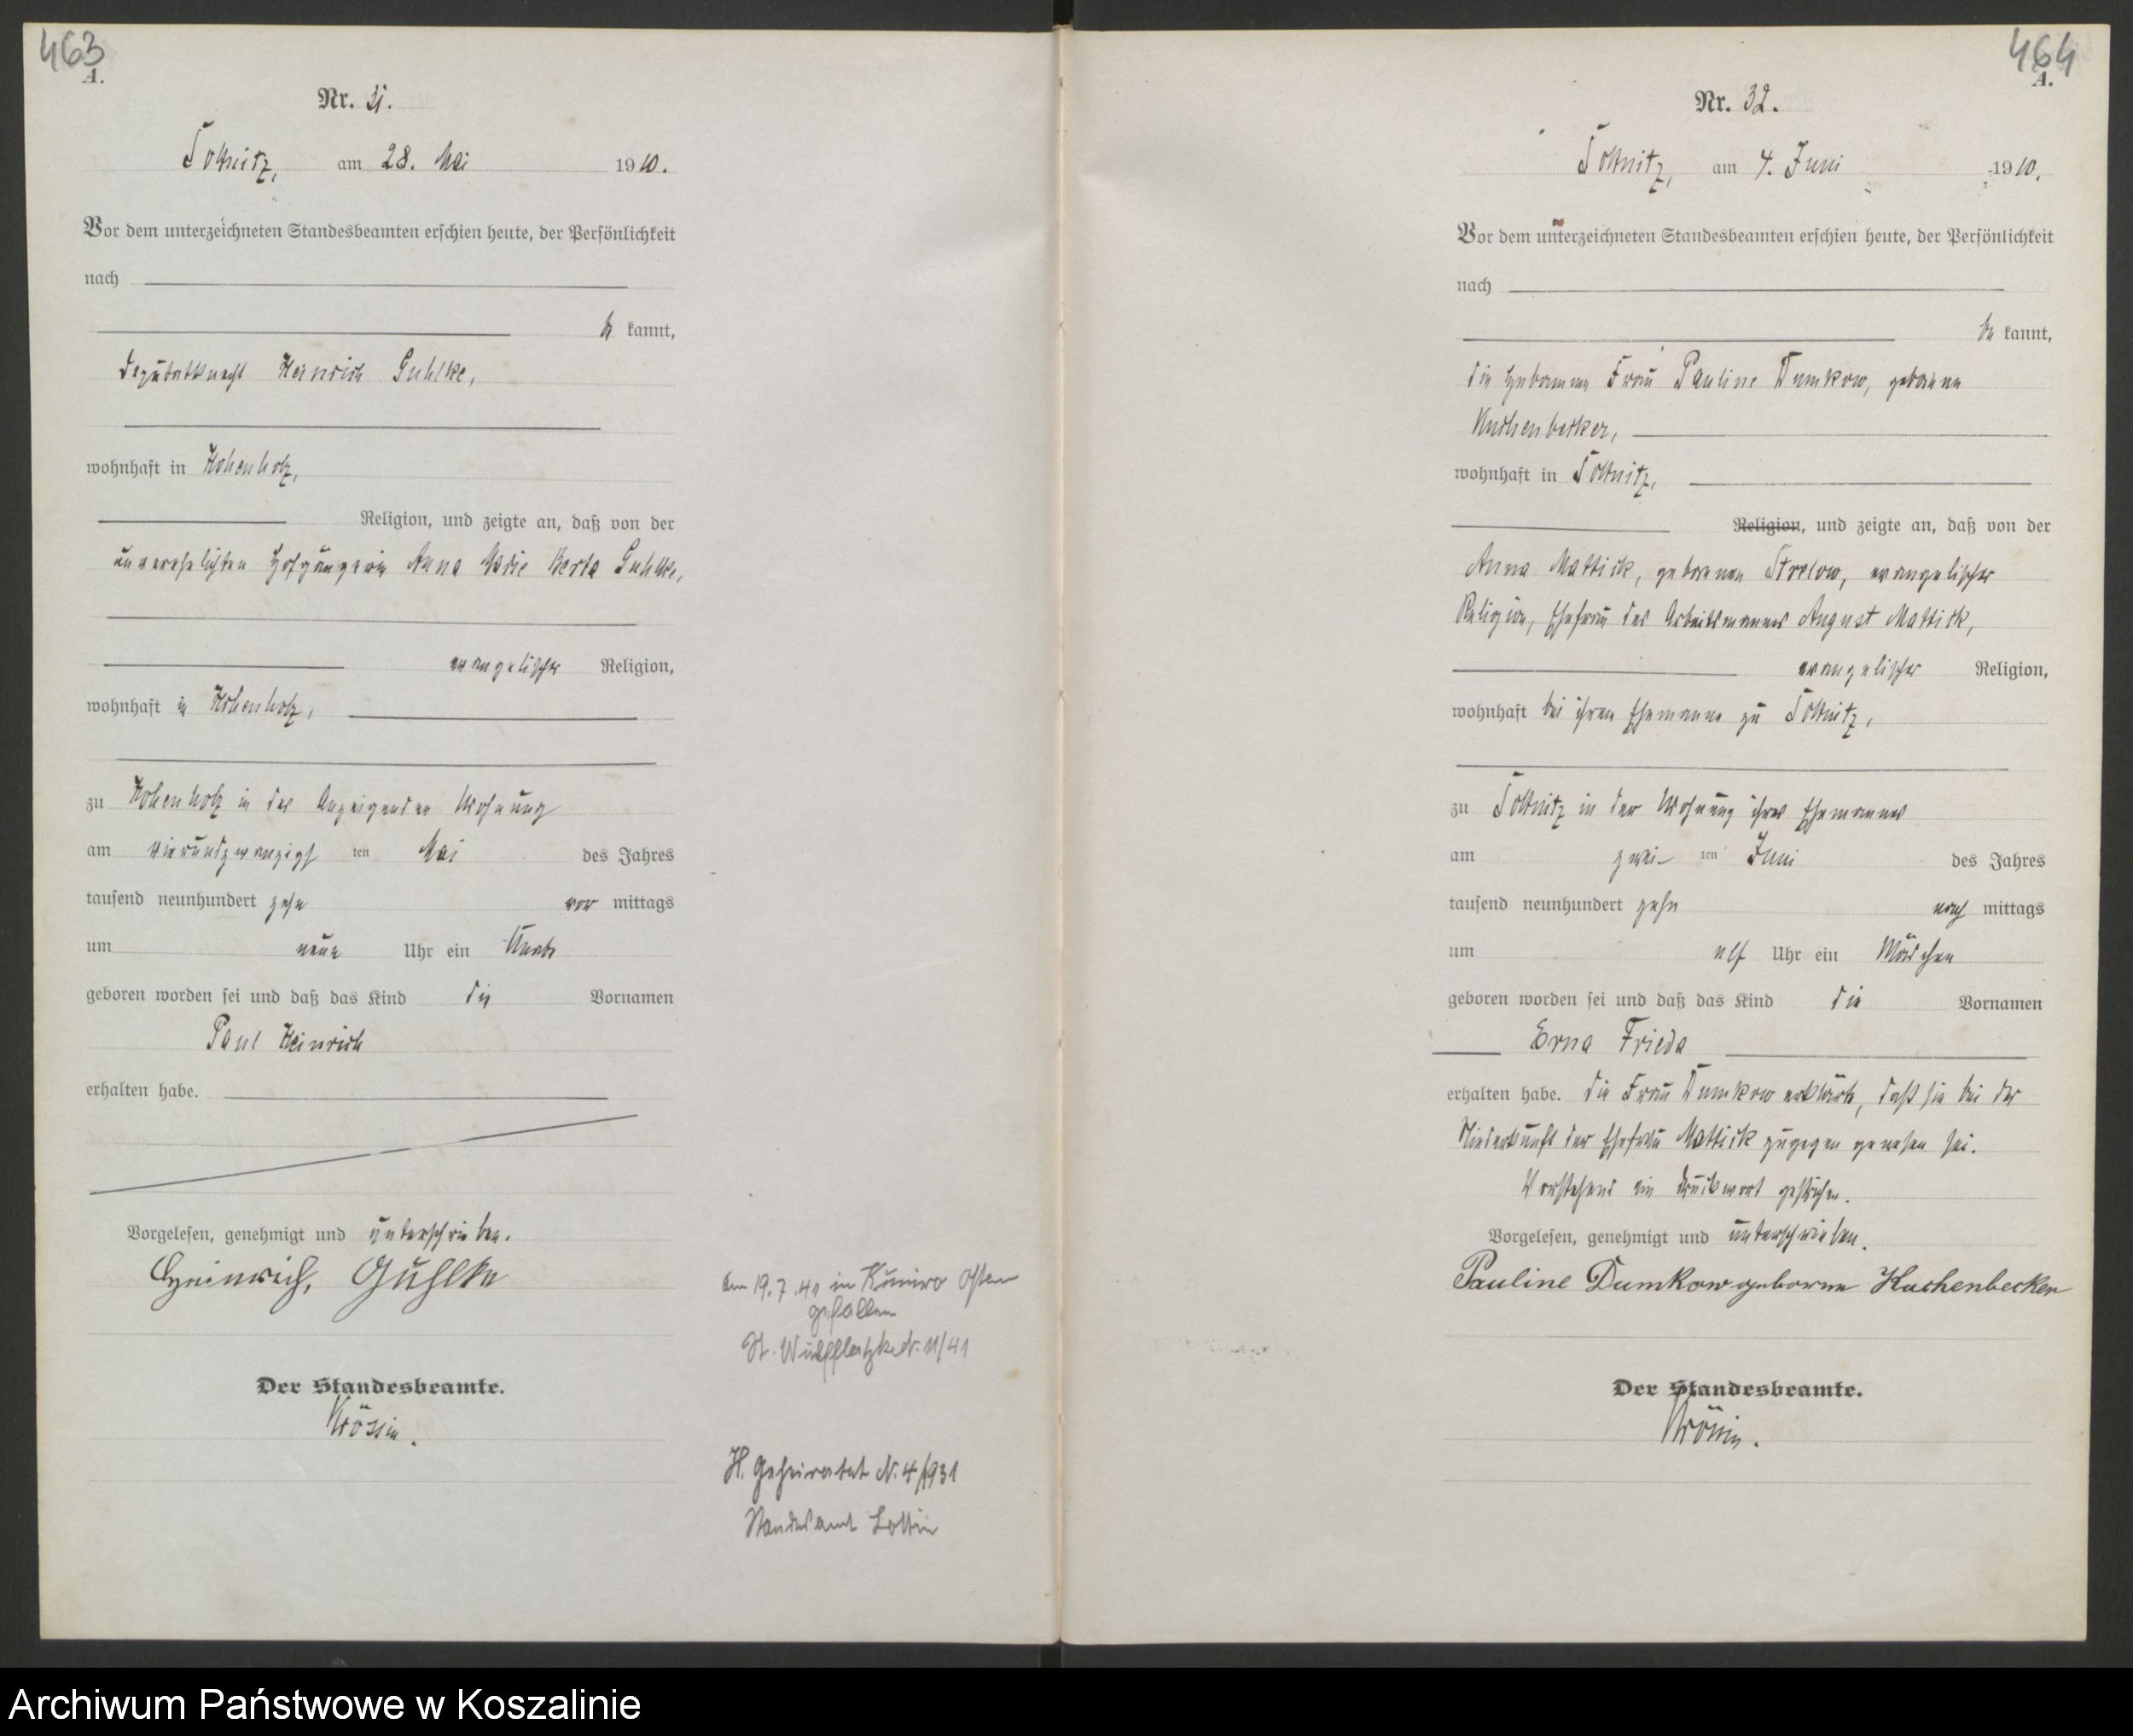 463
A.
Nr. 31.
am 28. Mai 1910.
Vor dem unterzeichneten Standesbeamten erschien heute, der Persönlichkeit
nach
be kannt,
Deputatknecht Heinrich Guhlke,
wohnhaft in Hohenholz,
Religion, und zeigte an, daß von der
unverehelichten Hofgängerin Anna Marie Berta Guhlke,
evangelischer Religion,
wohnhaft in Hohenholz,
zu Hohenholz in des Anzeigenden Wohnung
am vierundzwanzigsten Mai des Jahres
tausend neunhundert zehn vor mittags
um neun Uhr ein Knabe
geboren worden sei und daß das Kind die Vornamen
Paul Heinrich
erhalten habe.
Vorgelesen, genehmigt und unterschrieben.
Heinrich, Guhlke
Der Standesbeamte.
Krösin.
Am 19.7.41 in Osten
gefallen
St. Wulfflatzke Nr. 11/41
H. Geheiratet N. 4/1931
Standesamt Lottin
464
A.
Nr. 32.
am 4. Juni 1910.
Vor dem unterzeichneten Standesbeamten erschien heute, der Persönlichkeit
nach
be kannt,
die Hebamme Frau Pauline Dumkow, geborene
Kuchenbecker,
wohnhaft in
Religion, und zeigte an, daß von der
Anna Mattick, geborenen Strelow, evangelischer
Religion, Ehefrau des Arbeitsmannes August Mattick,
evangelischer Religion,
wohnhaft bei ihrem Ehemanne zu
zu in der Wohnung ihres Ehemannes
am zwei ten Juni des Jahres
tausend neunhundert zehn nach mittags
um elf Uhr ein Mädchen
geboren worden sei und daß das Kind die Vornamen
Erna Frieda
erhalten habe. Die Frau Dumkow erklärte, daß sie bei der
Niederkunft der Ehefrau Mattick zugegen gewesen sei.
Vorstehend ein Druckwort gestrichen.
Vorgelesen, genehmigt und unterschrieben.
Pauline Dumkow geborne Kuchenbecker
Der Standesbeamte.
Krösin.
Archiwum Państwowe w Koszalinie